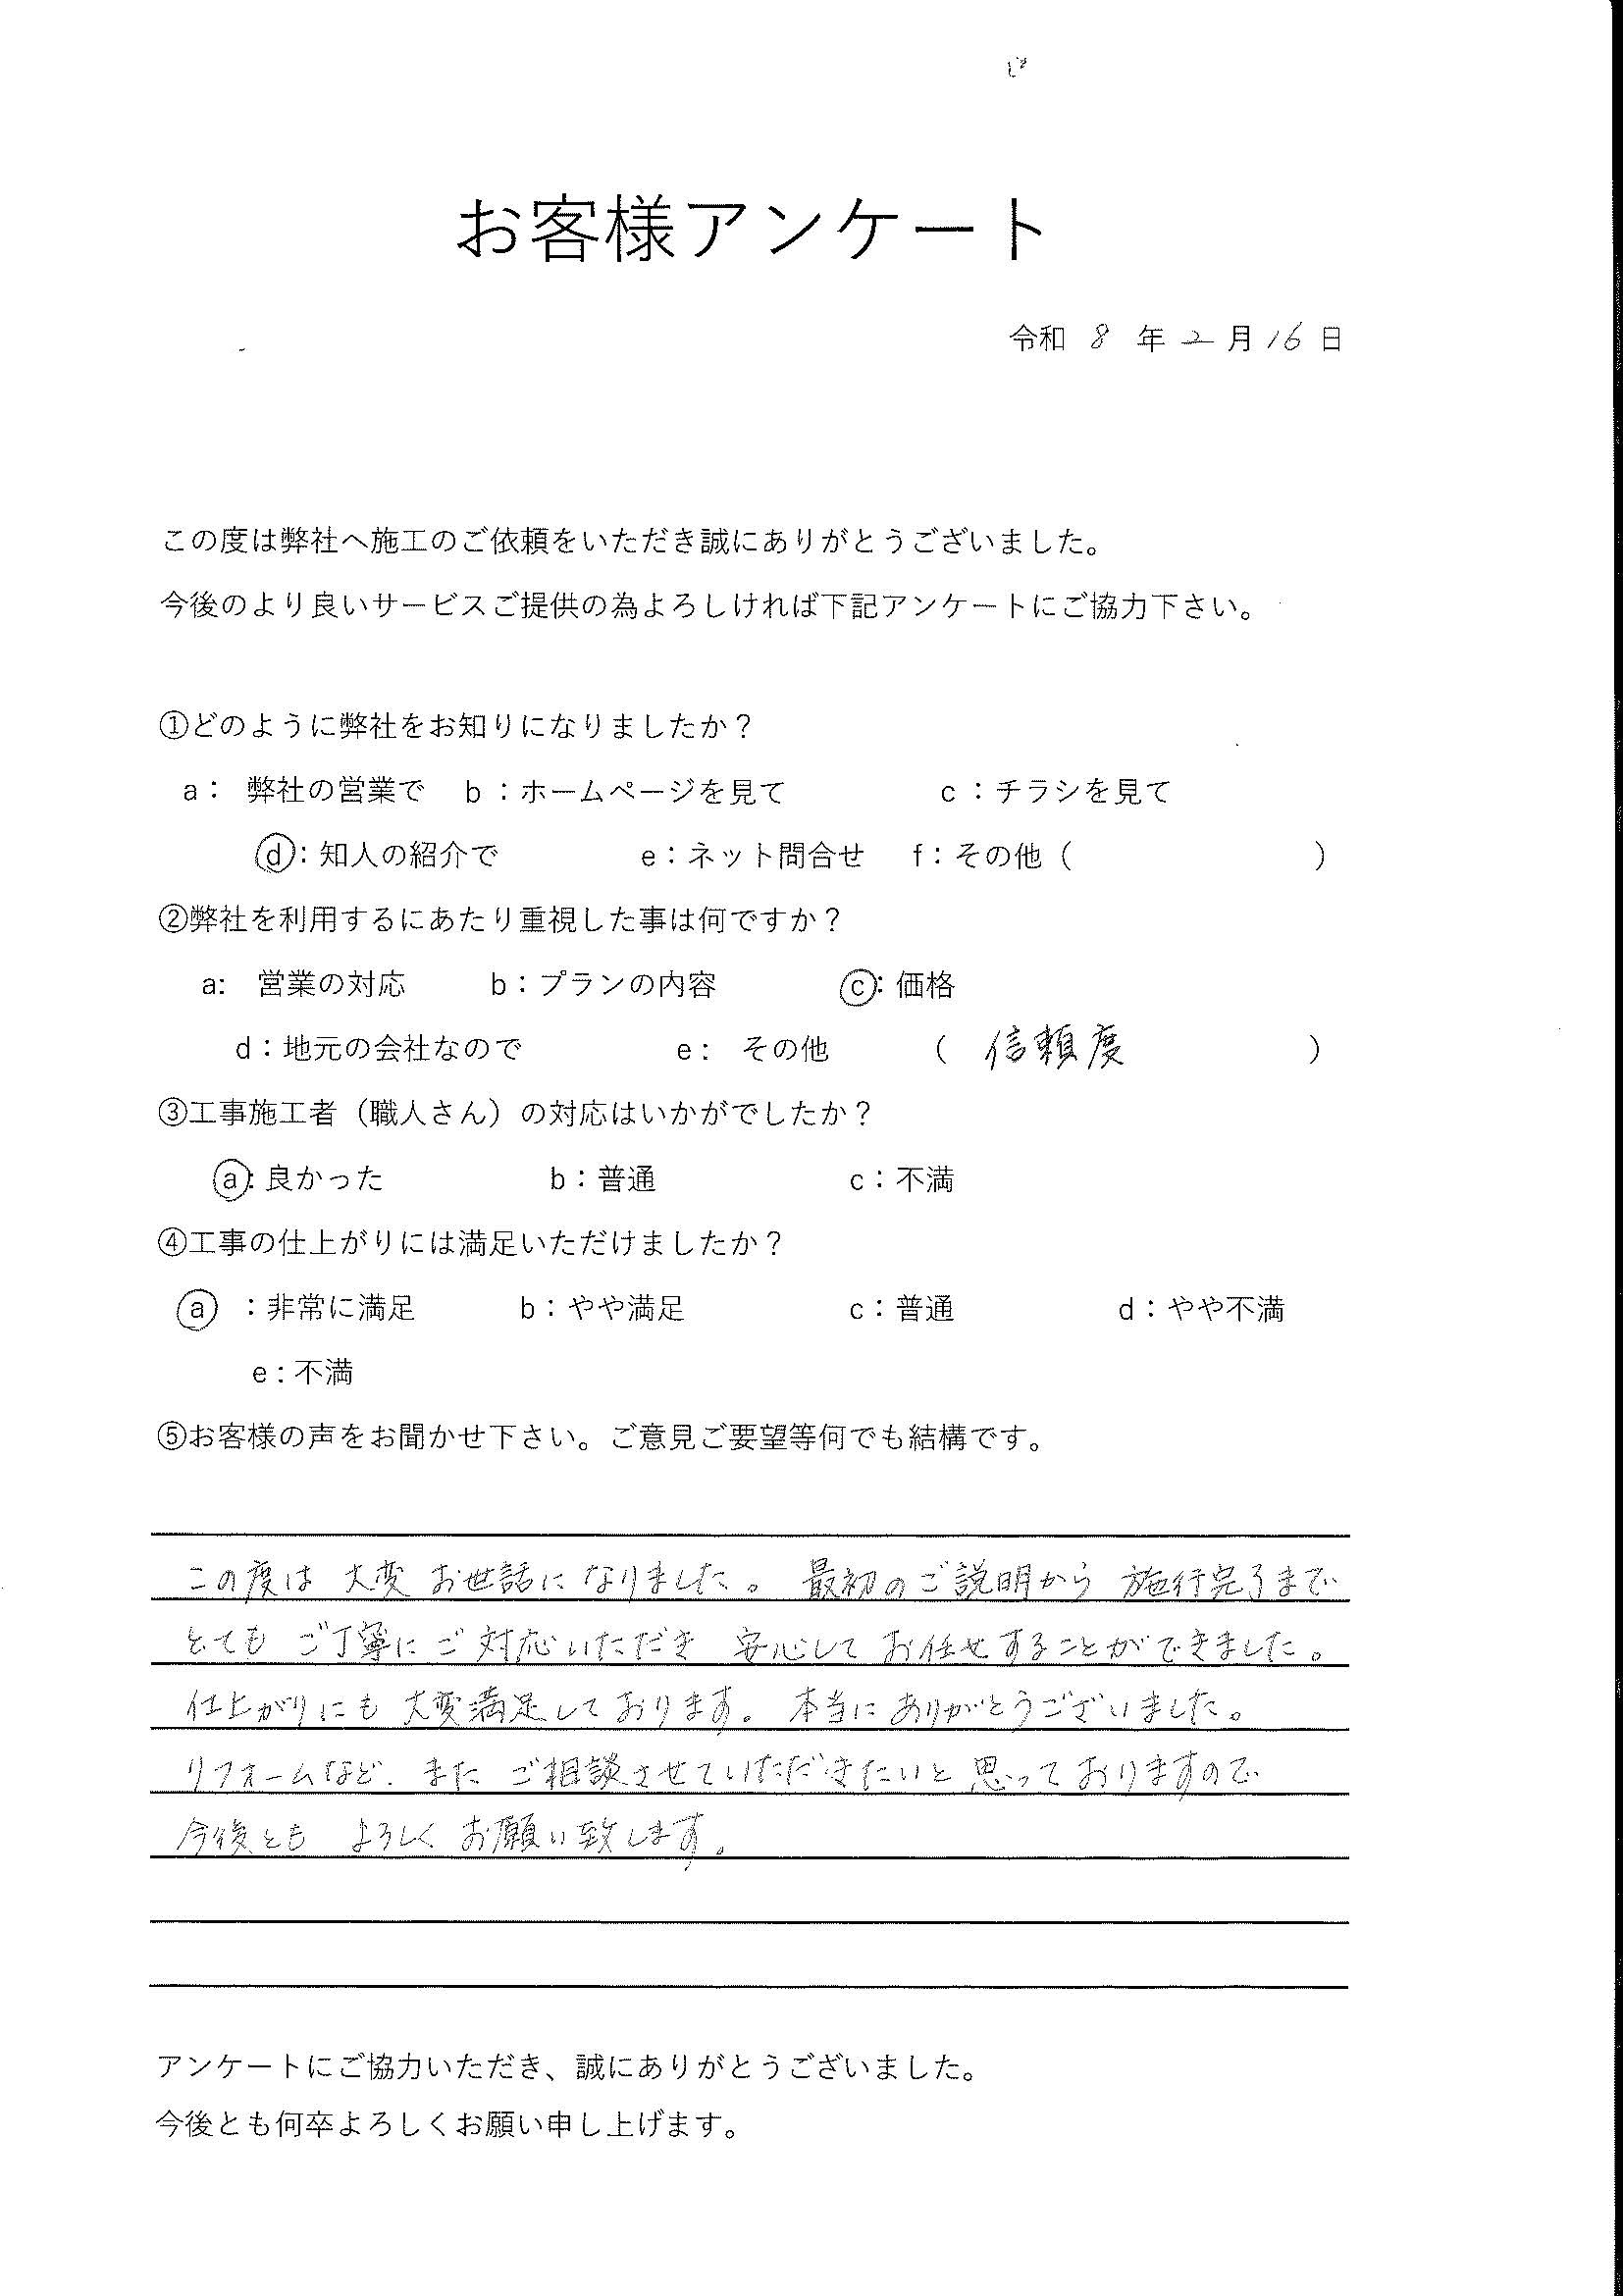 お客様アンケート
令和 8 年 2 月 16 日
この度は弊社へ施工のご依頼をいただき誠にありがとうございました。
今後のより良いサービスご提供の為よろしければ下記アンケートにご協力下さい。
①どのように弊社をお知りになりましたか？
a： 弊社の営業で b：ホームページを見て c：チラシを見て
d：知人の紹介で e：ネット問合せ f：その他（ ）
②弊社を利用するにあたり重視した事は何ですか？
a: 営業の対応 b：プランの内容 c：価格
d：地元の会社なので e： その他 （ 信頼度 ）
③工事施工者（職人さん）の対応はいかがでしたか？
a：良かった b：普通 c：不満
④工事の仕上がりには満足いただけましたか？
a ：非常に満足 b：やや満足 c：普通 d：やや不満
e：不満
⑤お客様の声をお聞かせ下さい。ご意見ご要望等何でも結構です。
この度は 大変 お世話に なりました。 最初のご説明から 施行完了まで
とても ご丁寧に ご対応いただき 安心して お任せすることができました。
仕上がりにも 大変満足しております。 本当に ありがとうございました。
リフォームなど、また ご相談させていただきたいと 思っておりますので
今後とも よろしく お願い致します。
アンケートにご協力いただき、誠にありがとうございました。
今後とも何卒よろしくお願い申し上げます。